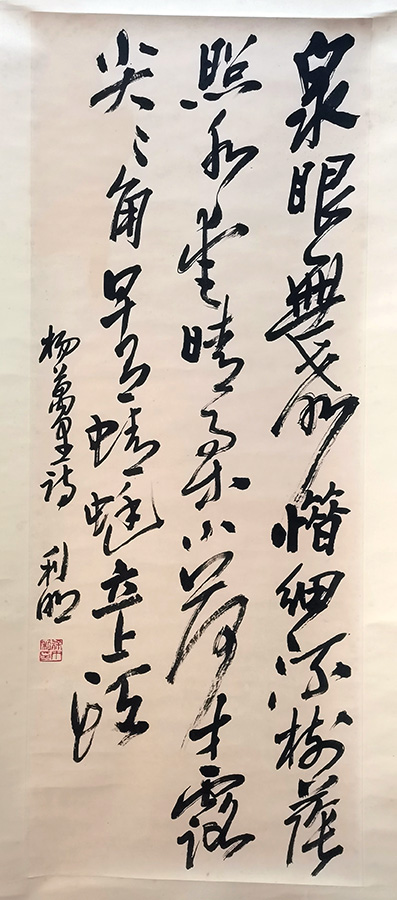 泉眼無声惜細流树蔭
照水愛晴柔小荷才露
尖々角早有蜻蜓立上頭
杨萬里詩 利明